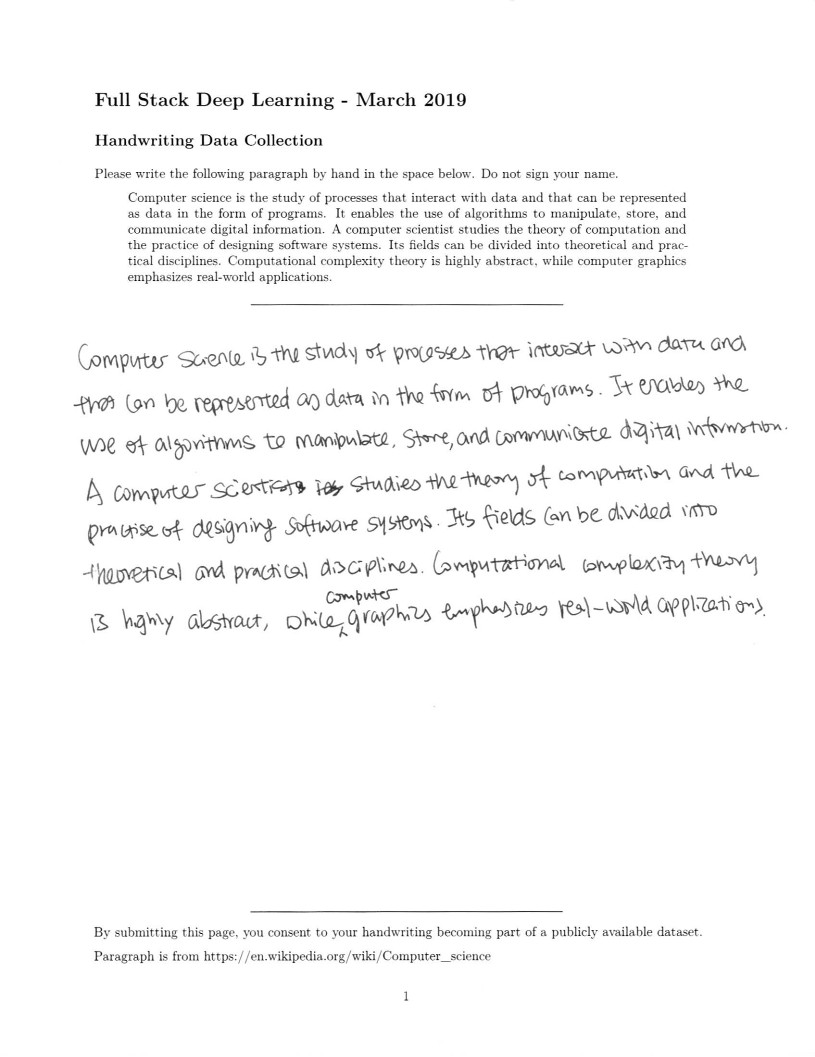 Full Stack Deep Learning - March 2019
Handwriting Data Collection
Please write the following paragraph by hand in the space below. Do not sign your name.
Computer science is the study of processes that interact with data and that can be represented
as data in the form of programs. It enables the use of algorithms to manipulate, store, and
communicate digital information. A computer scientist studies the theory of computation and
the practice of designing software systems. Its fields can be divided into theoretical and prac-
tical disciplines. Computational complexity theory is highly abstract, while computer graphics
emphasizes real-world applications.
Computer Science is the study of processes that interact with data and
that can be represented as data in the form of programs. It enables the
use of algorithms to manipulate, store, and communicate digital information.
A computer scientist studies the theory of computation and the
practise of designing software systems. Its fields can be divided into
theoretical and practical disciplines. Computational complexity theory
computer
is highly abstract, while graphics emphasizes real-world applications.
By submitting this page, you consent to your handwriting becoming part of a publicly available dataset.
Paragraph is from https://en.wikipedia.org/wiki/Computer_science
1